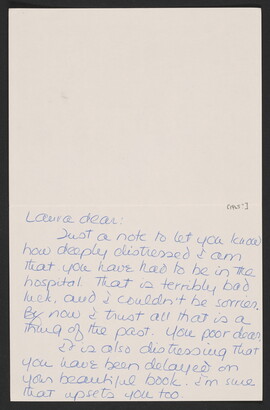 [1965?]
Laura dear:
Just a note to let you know
how deeply distressed i am
that you have had to be in the
hospital. That is terribly bad
luck, and i couldn't be sorrier.
By now i trust all that is a
thing of the past. You poor dear.
it is also distressing that
you have been delayed on
your beautiful book. i'm sure
that upsets you too.